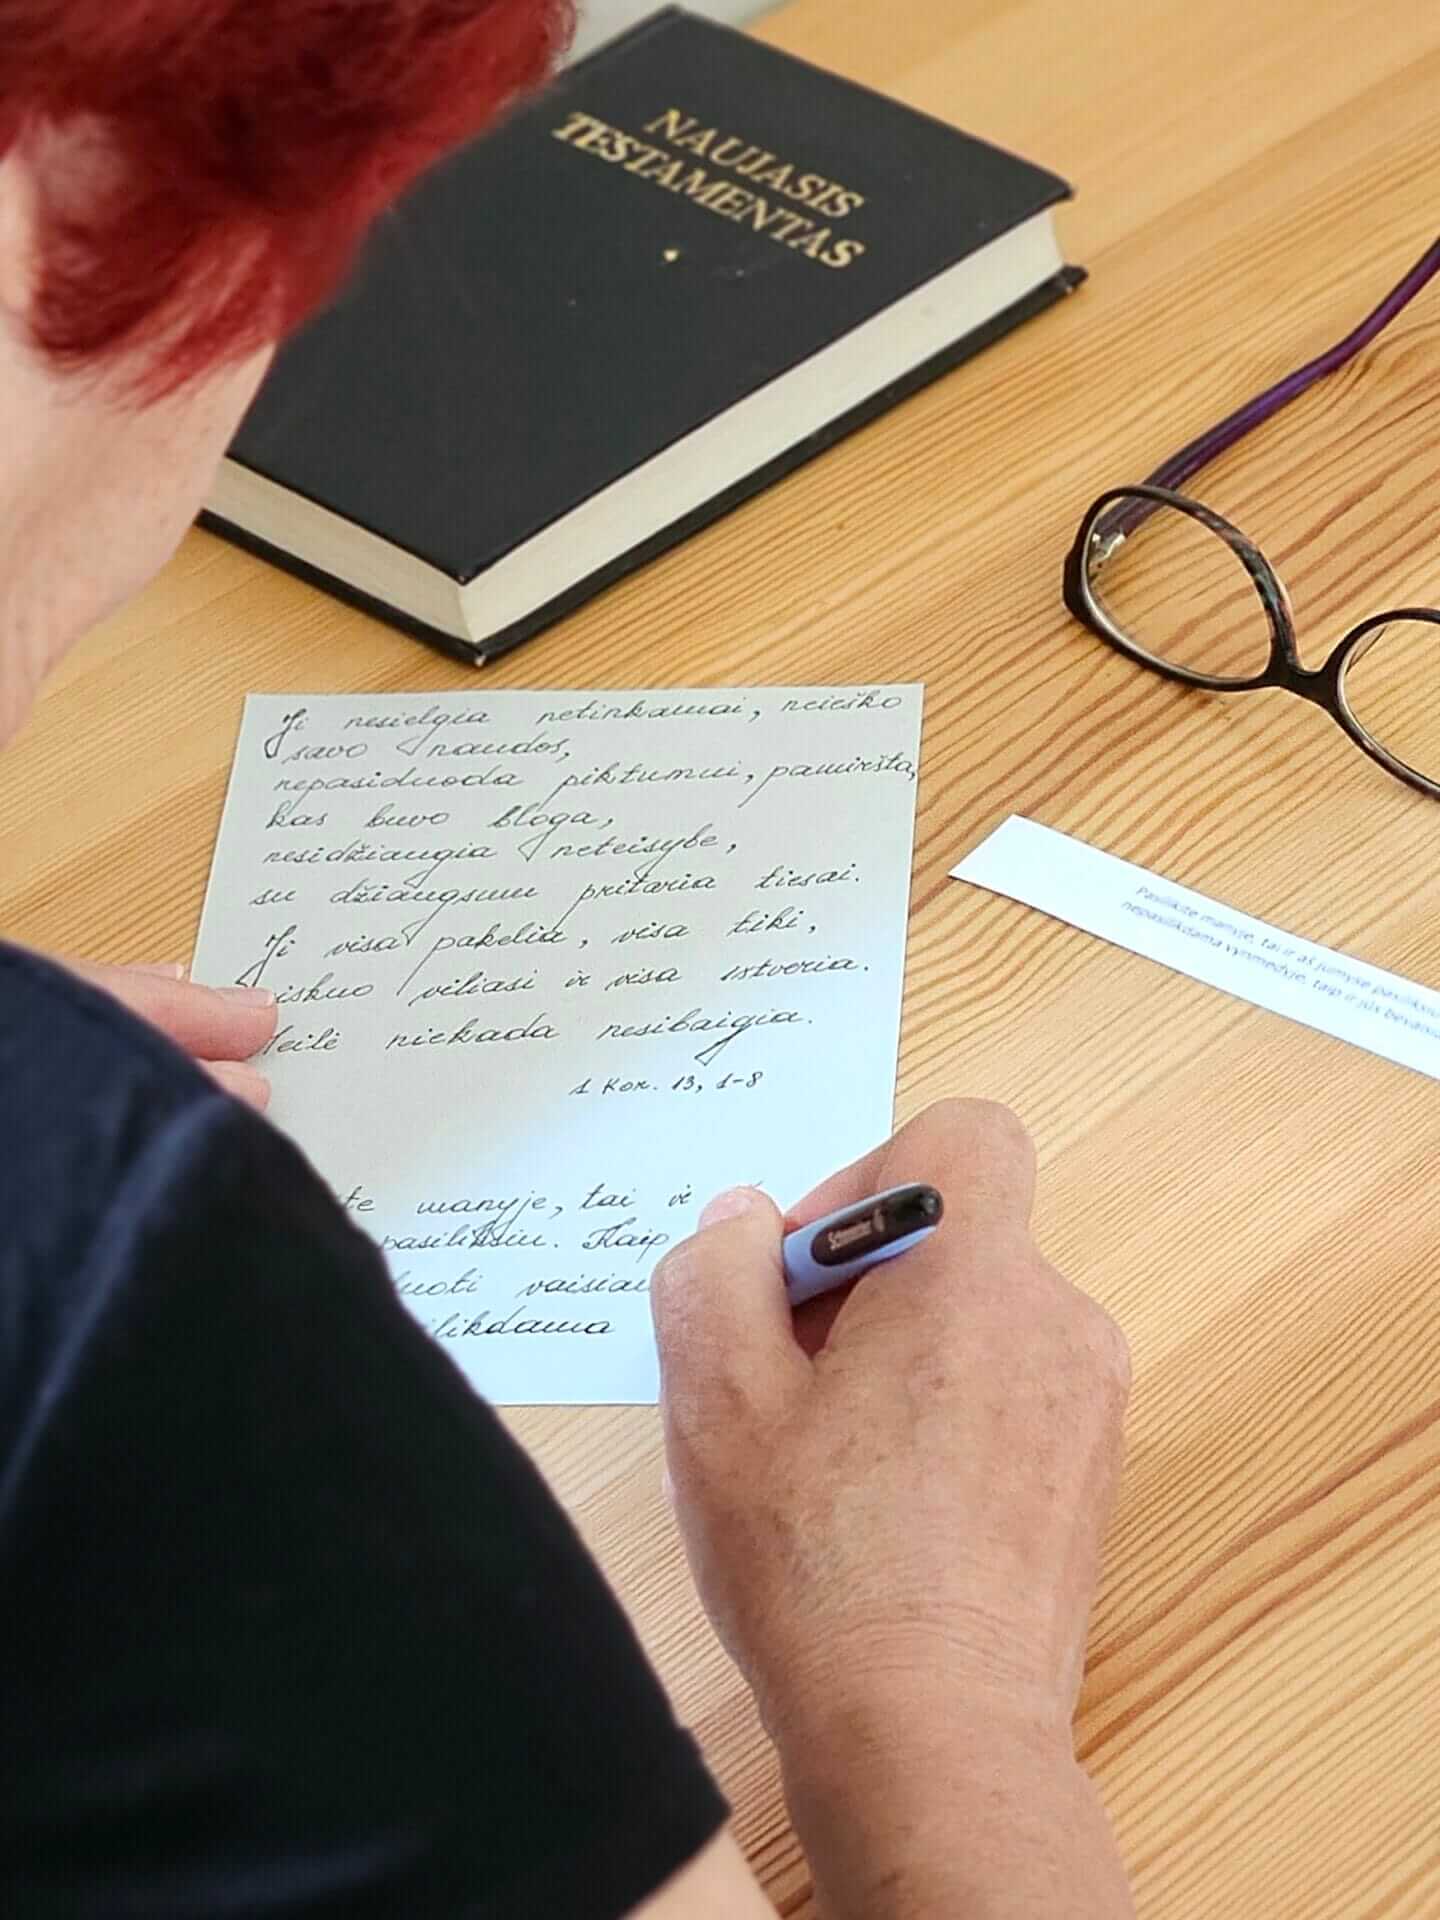 NAUJASIS
TESTAMENTAS
Ji nesielgia netinkamai, neieško
savo naudos,
nepasiduoda piktumui, pamiršta,
kas buvo bloga,
nesidžiaugia neteisybe,
su džiaugsmu pritaria tiesai.
Ji visa pakelia, visa tiki,
iskuo viliasi ir visa ištveria.
eilė niekada nesibaigia.
1 Kor. 13, 1-8
te manyje, tai ir
pasiliksiu. Kaip
uoti vaisiau
ilikdama
Pasilikite manyje, tai ir aš jumyse pasiliksiu
nepasilikdama vynmedyje, taip ir jūs be
Schneider